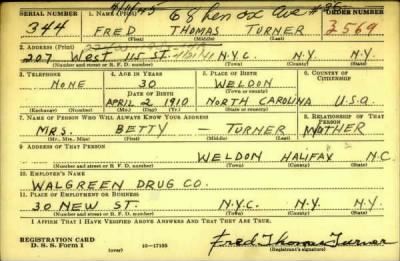 4/11/45 68 Lenox Ave
SERIAL NUMBER 1. NAME (Print) ORDER NUMBER
344 FRED THOMAS TURNER 3569
(First) (Middle) (Last)
2. ADDRESS (Print)
207 West 115 ST. N.Y.C. N.Y. N.Y.
(Number and street or R. F. D. number) (Town) (County) (State)
3. TELEPHONE 4. AGE IN YEARS 5. PLACE OF BIRTH 6. COUNTRY OF CITIZENSHIP
NONE 30 WELDON
DATE OF BIRTH (Town or county)
APRIL 2, 1910 NORTH CAROLINA U.S.A.
(Exchange) (Number) (Mo.) (Day) (Yr.) (State or country)
7. NAME OF PERSON WHO WILL ALWAYS KNOW YOUR ADDRESS 8. RELATIONSHIP OF THAT PERSON
MRS. BETTY — TURNER MOTHER
(Mr., Mrs., Miss) (First) (Middle) (Last)
9. ADDRESS OF THAT PERSON
WELDON HALIFAX N.C.
(Number and street or R. F. D. number) (Town) (County) (State)
10. EMPLOYER'S NAME
WALGREEN DRUG CO.
11. PLACE OF EMPLOYMENT OR BUSINESS
30 NEW ST. N.Y.C. N.Y. N.Y.
(Number and street or R. F. D. number) (Town) (County) (State)
I AFFIRM THAT I HAVE VERIFIED ABOVE ANSWERS AND THAT THEY ARE TRUE.
REGISTRATION CARD
D. S. S. Form 1 (over) 16—17105
Fred Thomas Turner
(Registrant's signature)